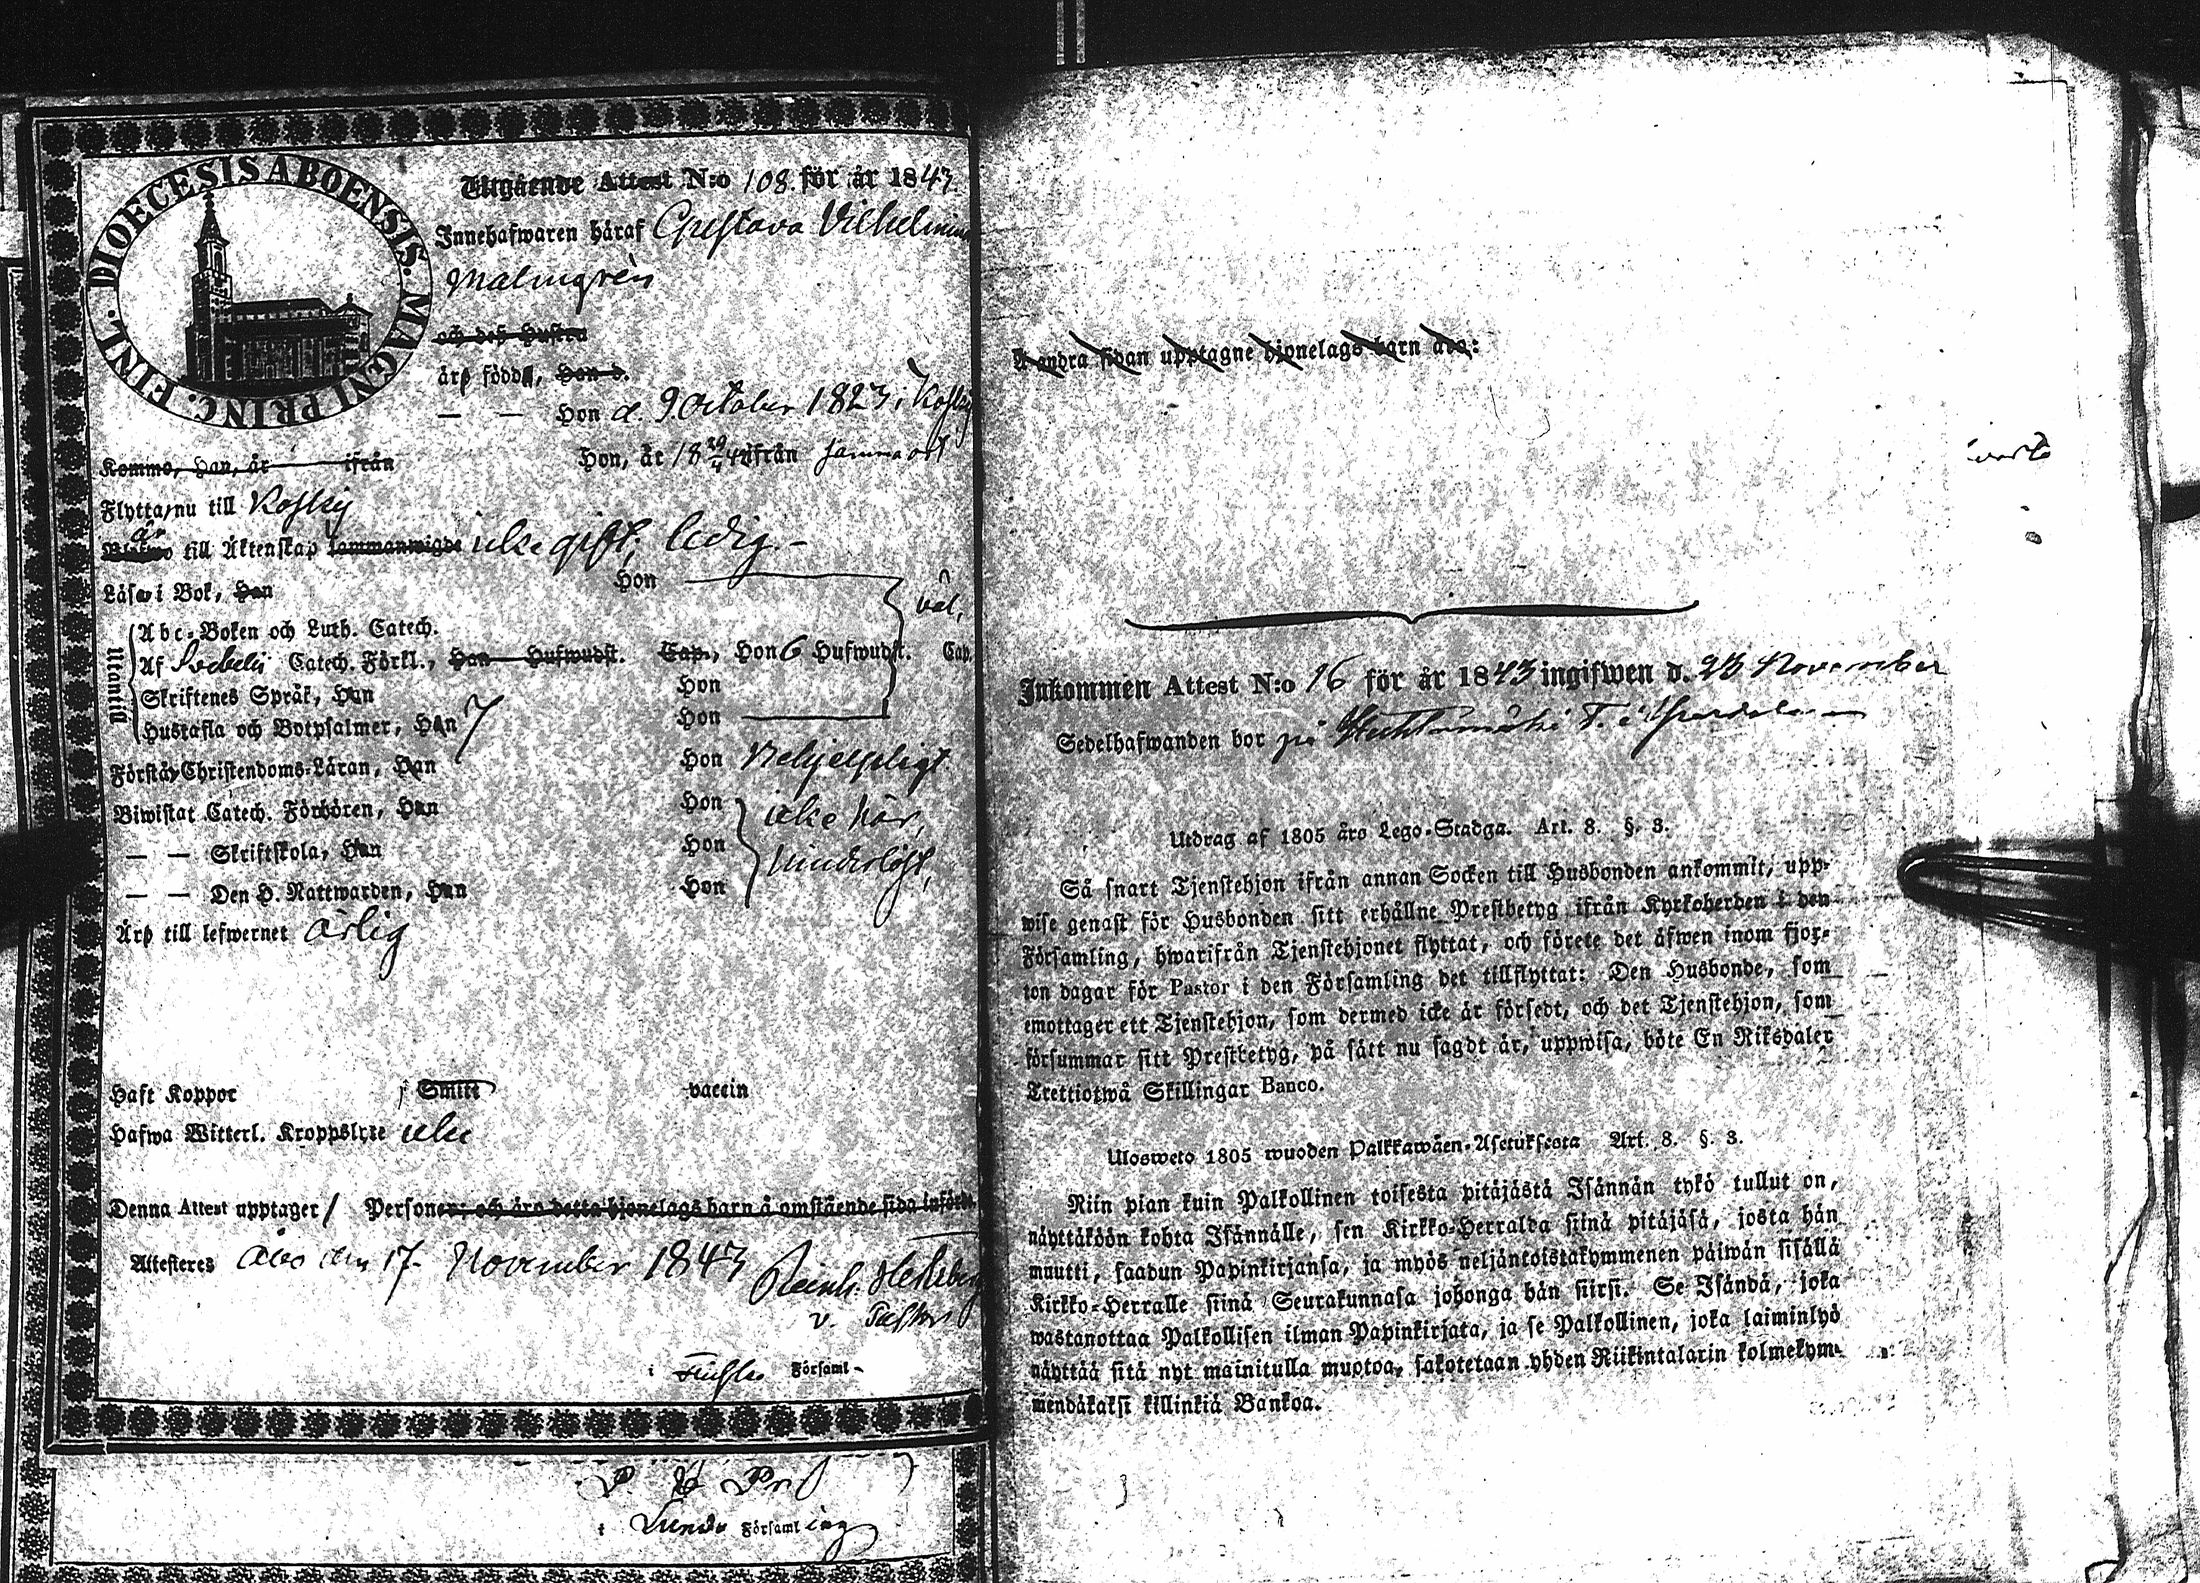 DIOECESIS ABOENSIS. MAGNI PRINC. FINL.
Utgående Attest N:o 108. för år 1843.
Innehafwaren häraf Gustava Vilhelmina
Malmgrén
och deß Hustru
äro födde, Han d.
— — Hon d. 9 October 1823 i Koskis
Kommo, Han, år ifrån Hon, år 18 ifrån samma ort
Flytta nu till Koskis
är till Äktenskap sammanwigde icke gift, ledig. -
Läsa i Bok, Han Hon
väl,
Utantill
Abc-Boken och Luth. Catech.
Af Svebelii Catech. Förkl., Han Hufwudst. Cap., Hon 6 Hufwudst. Cap.
Skriftenes Språk, Han Hon
Hustafla och Botpsalmer, Han 7 Hon
Förstå Christendoms-Läran, Han Hon
Biwistat Catech. Förhören, Han Hon icke här,
— — Skriftskola, Han Hon
— — Den H. Nattwarden, Han Hon
Äro till lefwernet ärlig
Haft Koppor Smitt vaccin
Hafwa Witterl. Kroppslyte icke
Denna Attest upptager 1 Personer, och äro detta hjonelags barn å omstående sida införde.
Attesteres Åbo den 17. November 1843 Reinh.
v. Pastor
i Finska Församl -
i Församling
Å andra sidan upptagne hjonelags barn äro:
Inkommen Attest N:o 16 för år 1843 ingifwen d. 23 November
Sedelhafwanden bor på
Utdrag af 1805 års Lego-Stadga. Art. 8. §. 3.
Så snart Tjenstehjon ifrån annan Socken till Husbonden ankommit, upp-
wise genast för Husbonden sitt erhållne Prestbetyg ifrån Kyrkoherden i den
Församling, hwarifrån Tjenstehjonet flyttat, och förete det äfwen inom fjor-
ton dagar för Pastor i den Församling det tillflyttat: Den Husbonde, som
emottager ett Tjenstehjon, som dermed icke är försedt, och det Tjenstehjon, som
försummar sitt Prestbetyg, på sätt nu sagdt är, uppwisa, böte En Riksdaler
Trettiotwå Skillingar Banco.
Ulosweto 1805 wuoden Palkkawäen-Asetuksesta Art. 8. §. 3.
Niin pian kuin Palkollinen toisesta pitäjästä Isännän tykö tullut on,
näyttäköön kohta Isännälle, sen Kirkko-Herralda siinä pitäjäsä, josta hän
muutti, saadun Papinkirjansa, ja myös neljäntoistakymmenen päiwän sisällä
Kirkko-Herralle siinä Seurakunnasa johonga hän siirsi. Se Isändä, joka
wastanottaa Palkollisen ilman Papinkirjata, ja se Palkollinen, joka laiminlyö
näyttää sitä nyt mainitulla muotoa, sakotetaan yhden Riikintalarin kolmekym-
mendäkaksi killinkiä Bankoa.